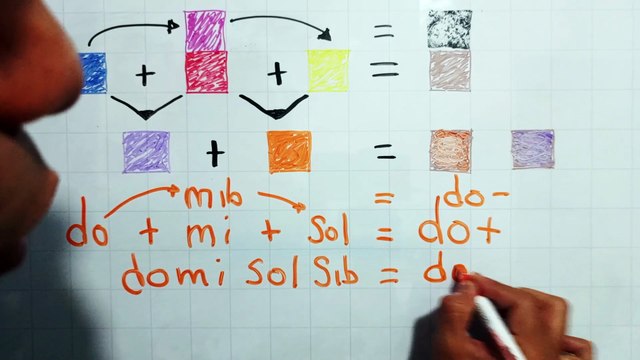 =
+ + =
+ =
mib = do-
do + mi + sol = do+
domi sol sib = do